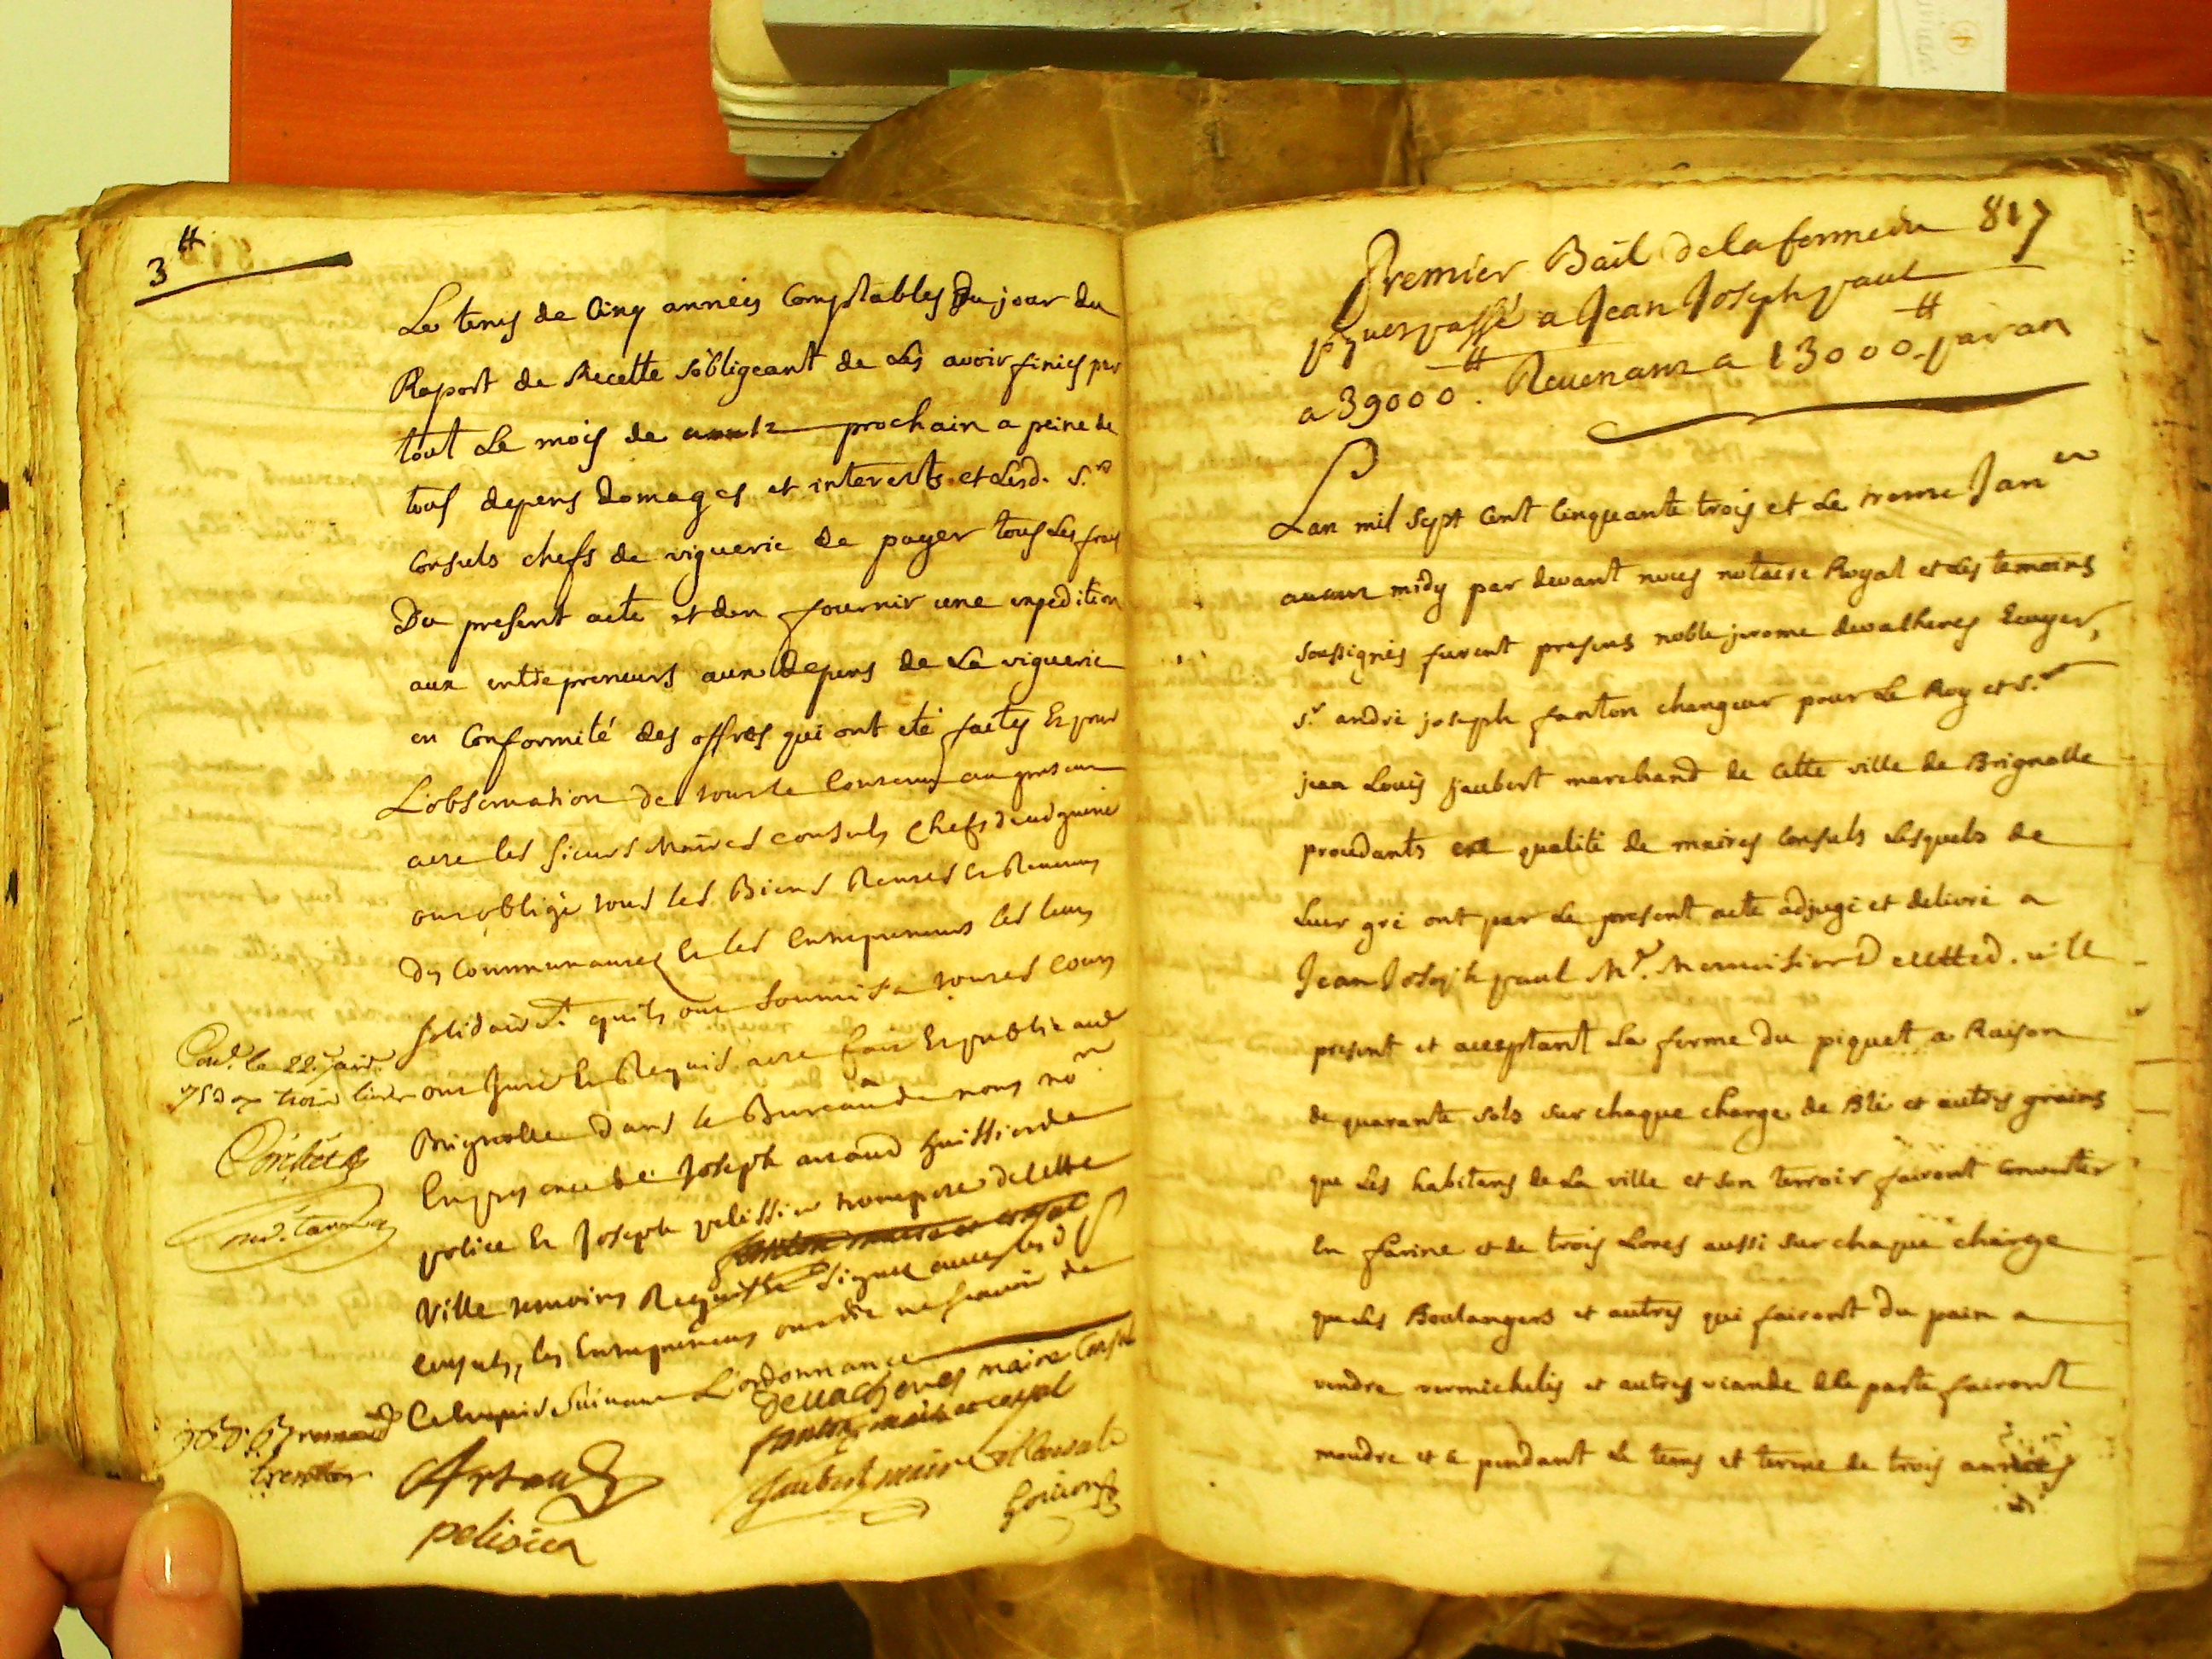 3 ₶
Le tems de Cinq années Comptables Du jour du
Raport de Recette s'obligeant de Les avoir finies par
tout Le mois de prochain a peine de
tous depens domages et interests et Lesd. S.rs
Consuls chefs de viguerie de payer tous Les frais
Du present acte et den fournir une expedition
aux entrepreneurs aux depens de La viguerie
en Conformité des offres qui ont eté faites Et pour
L'observation de tout le Contenu au present
acte les sieurs Maires Consuls Chefs de viguerie
ont obligé tous les Biens Rentes et Revenus
des Communautez Et les Entrepreneurs les leurs
solidairt. quils ont soumis a toutes Cours
ont Juré Et Requis acte fait Et publié aud
Brignolle dans le Bureau de nous nore
En presence de Joseph arnaud huissier de
police Et Joseph pelissier trompete de cette
Ville temoins Requis signez avec lesd Srs
Consuls, les Entrepreneurs ont dit ne scavoir de
Ce Enquis suivant L'ordonnance
Conlé. le 22. janr.
1753 trois livres
Devalhenes maire Consul
fanton maire et consul
Jaubert maire et Consul
Arnaud
pelisier
817
Premier Bail de la ferme du
piquet passé a Jean Joseph paul
a 39000 ₶. Revenant a 13000 ₶ par an
Lan mil sept cent Cinquante trois et Le treme Janer
avant midy par devant nous notaire Royal et Les temoins
soussignés furent presens noble jerome devalhenes Ecuyer,
s.r andré joseph fanton changeur pour Le Roy et s.r
jean Louis jaubert marchand de cette ville de Brignolle
procedants en qualité de maires Consuls Lesquels de
Leur gré ont par Le present acte adjugé et delivré a
Jean Joseph paul Mr. Menuisier De cetted. ville
present et acceptant La ferme du piquet a Raison
de quarante sols sur chaque charge de Blé et autres grains
que Les habitans de La ville et son terroir fairont Convertir
En farine et de trois Livres aussi sur chaque charge
que Les Boulangers et autres qui fairont du pain a
vendre vermichelis et autres viande de paste fairont
moudre et ce pendant Le tems et terme de trois années